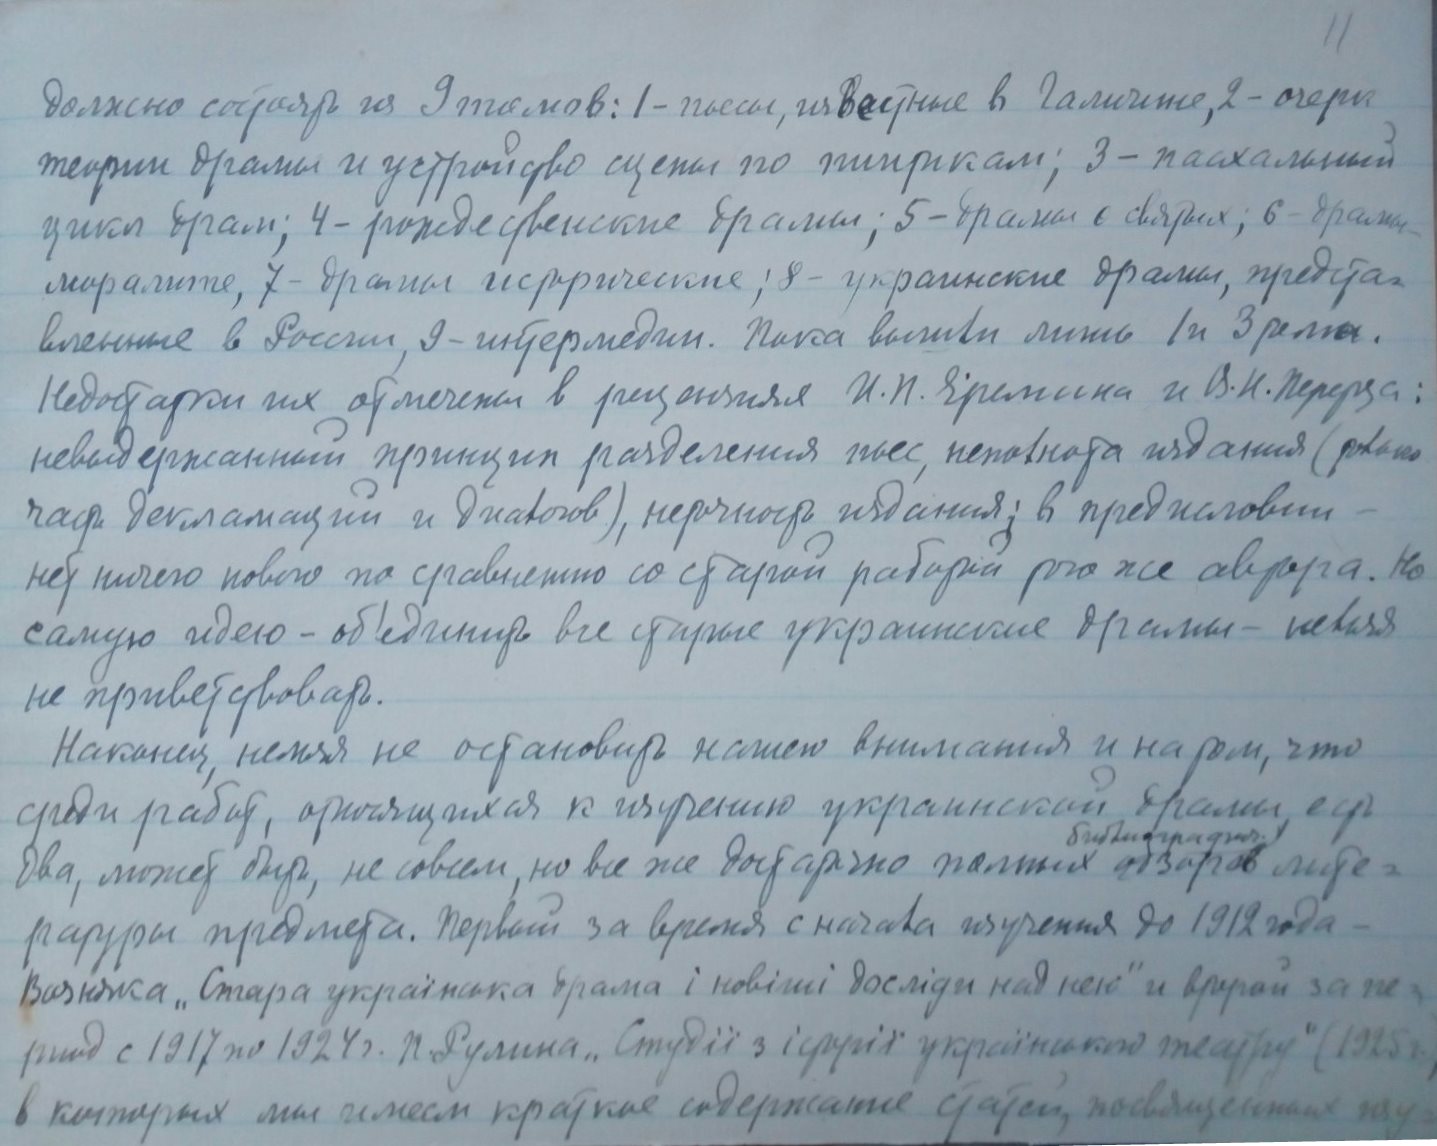 11
должно состоять из 9 томов: 1 - пьесы, известные в Галичине, 2 - очерк
теории драмы и устройство сцены по пиитикам; 3 - пасхальный
цикл драм; 4 - рождественские драмы; 5 - драмы о святых; 6 - драмы-
моралите, 7 - драмы исторические; 8 - украинские драмы, предста=
вленные в России, 9 - интермедии. Пока вышли лишь 1 и 3 тома.
Недостатки их отмечены в рецензиях И.П. Еремина и В.Н. Перетца:
невыдержанный принцип разделения пьес, неполнота издания (только
часть декламаций и диалогов), неточность издания; в предисловии -
нет ничего нового по сравнению со старой работой того же автора. Но
самую идею - об'единить все старые украинские драмы - нельзя
не приветствовать.
Наконец, нельзя не остановить нашего внимания и на том, что
среди работ, относящихся к изучению украинской драмы, есть
библиографич.
два, может быть, не совсем, но все же достаточно полных обзоров лите=
ратуры предмета. Первый за время с начала изучения до 1912 года -
Возняка „Стара українська драма і новіші досліди над нею" и второй за пе=
риод с 1917 по 1924 г. П. Рулина „Студії з історії українського театру" (1925 г.)
в которых мы имеем краткое содержание статей, посвященных изу=